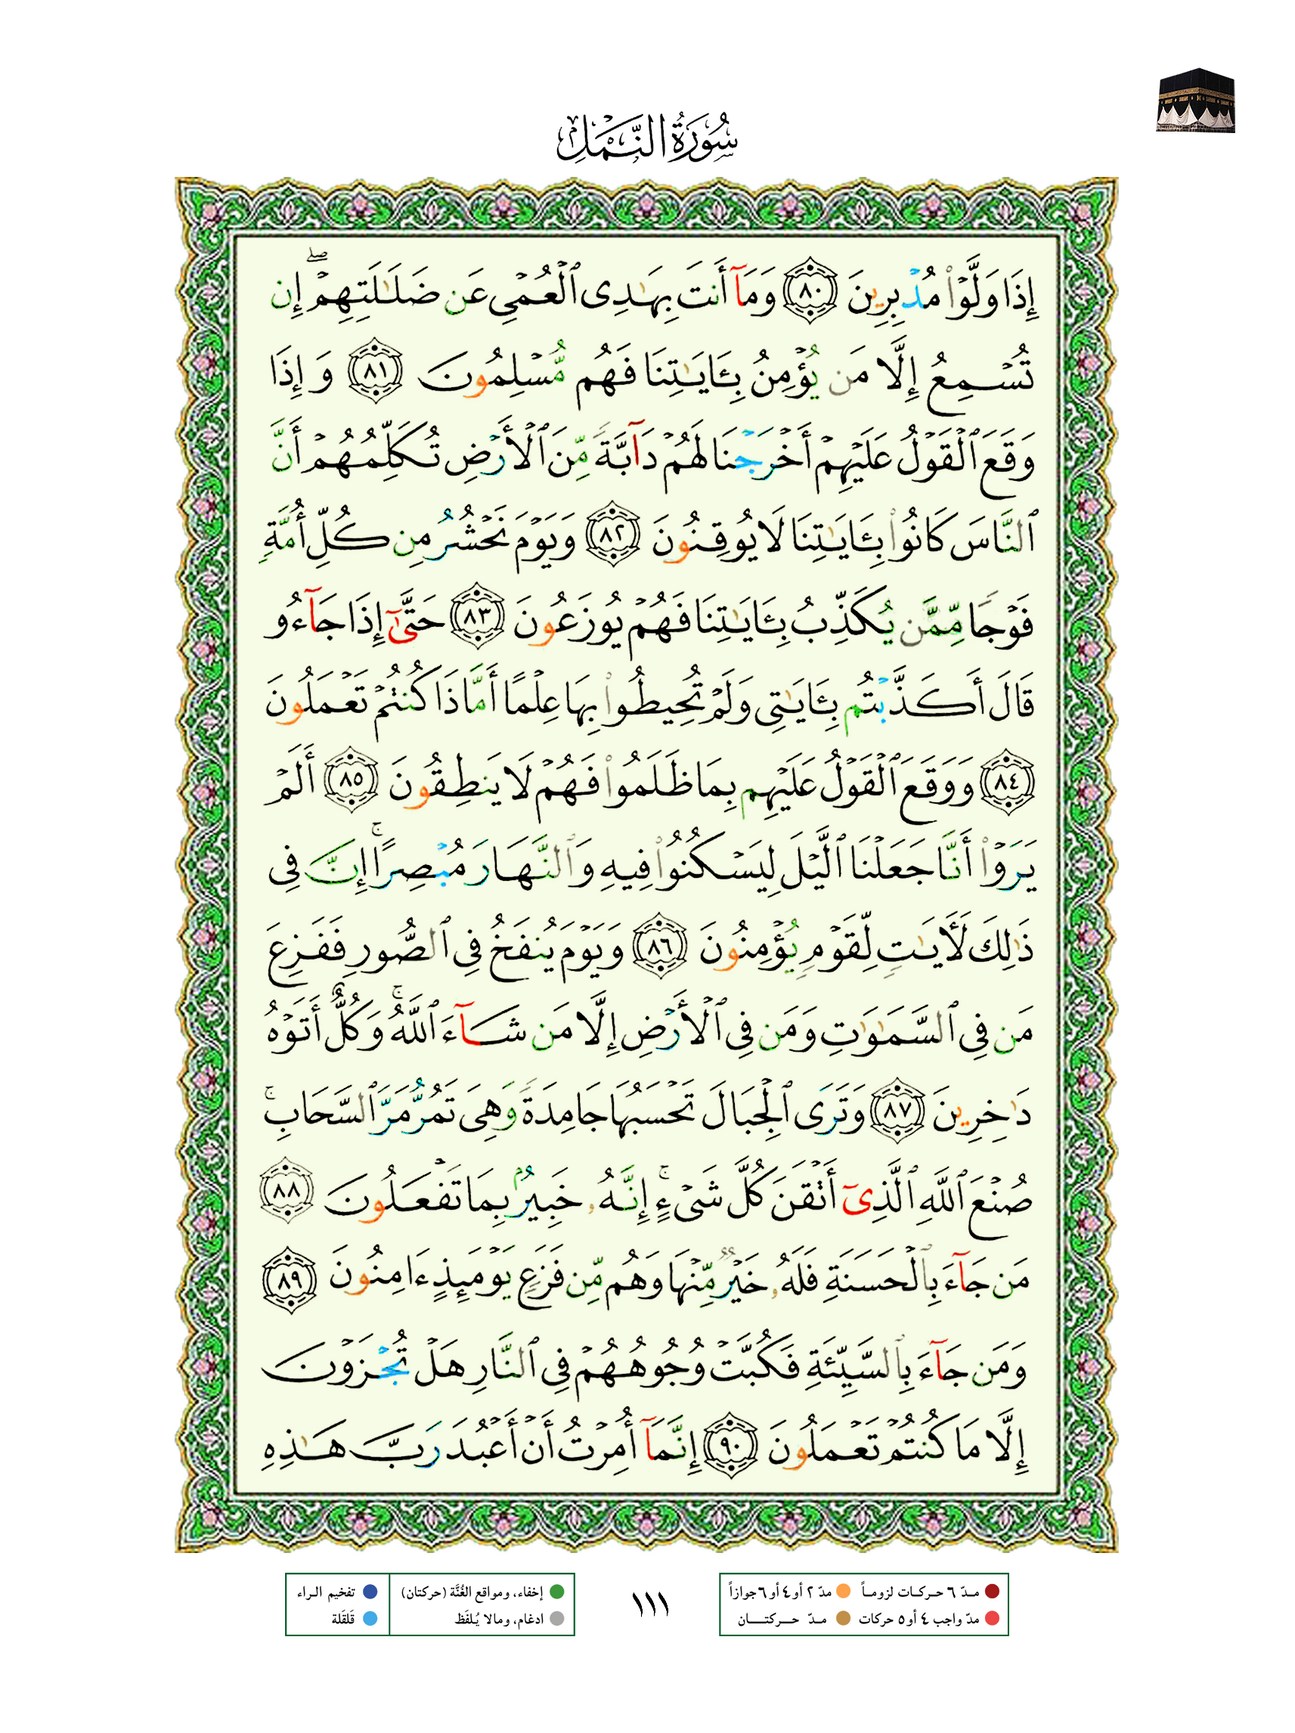 سُورَةُ النَّمْلِ
إِذَا وَلَّوْا۟ مُدْبِرِينَ ﴿٨٠﴾ وَمَآ أَنتَ بِهَـٰدِى ٱلْعُمْىِ عَن ضَلَـٰلَتِهِمْ ۖ إِن
تُسْمِعُ إِلَّا مَن يُؤْمِنُ بِـَٔايَـٰتِنَا فَهُم مُّسْلِمُونَ ﴿٨١﴾ وَإِذَا
وَقَعَ ٱلْقَوْلُ عَلَيْهِمْ أَخْرَجْنَا لَهُمْ دَآبَّةً مِّنَ ٱلْأَرْضِ تُكَلِّمُهُمْ أَنَّ
ٱلنَّاسَ كَانُوا۟ بِـَٔايَـٰتِنَا لَا يُوقِنُونَ ﴿٨٢﴾ وَيَوْمَ نَحْشُرُ مِن كُلِّ أُمَّةٍ
فَوْجًا مِّمَّن يُكَذِّبُ بِـَٔايَـٰتِنَا فَهُمْ يُوزَعُونَ ﴿٨٣﴾ حَتَّىٰٓ إِذَا جَآءُو
قَالَ أَكَذَّبْتُم بِـَٔايَـٰتِى وَلَمْ تُحِيطُوا۟ بِهَا عِلْمًا أَمَّاذَا كُنتُمْ تَعْمَلُونَ
﴿٨٤﴾ وَوَقَعَ ٱلْقَوْلُ عَلَيْهِم بِمَا ظَلَمُوا۟ فَهُمْ لَا يَنطِقُونَ ﴿٨٥﴾ أَلَمْ
يَرَوْا۟ أَنَّا جَعَلْنَا ٱلَّيْلَ لِيَسْكُنُوا۟ فِيهِ وَٱلنَّهَارَ مُبْصِرًا ۚ إِنَّ فِى
ذَٰلِكَ لَـَٔايَـٰتٍ لِّقَوْمٍ يُؤْمِنُونَ ﴿٨٦﴾ وَيَوْمَ يُنفَخُ فِى ٱلصُّورِ فَفَزِعَ
مَن فِى ٱلسَّمَـٰوَٰتِ وَمَن فِى ٱلْأَرْضِ إِلَّا مَن شَآءَ ٱللَّهُ ۚ وَكُلٌّ أَتَوْهُ
دَٰخِرِينَ ﴿٨٧﴾ وَتَرَى ٱلْجِبَالَ تَحْسَبُهَا جَامِدَةً وَهِىَ تَمُرُّ مَرَّ ٱلسَّحَابِ ۚ
صُنْعَ ٱللَّهِ ٱلَّذِىٓ أَتْقَنَ كُلَّ شَىْءٍ ۚ إِنَّهُۥ خَبِيرٌۢ بِمَا تَفْعَلُونَ ﴿٨٨﴾
مَن جَآءَ بِٱلْحَسَنَةِ فَلَهُۥ خَيْرٌ مِّنْهَا وَهُم مِّن فَزَعٍ يَوْمَئِذٍ ءَامِنُونَ ﴿٨٩﴾
وَمَن جَآءَ بِٱلسَّيِّئَةِ فَكُبَّتْ وُجُوهُهُمْ فِى ٱلنَّارِ هَلْ تُجْزَوْنَ
إِلَّا مَا كُنتُمْ تَعْمَلُونَ ﴿٩٠﴾ إِنَّمَآ أُمِرْتُ أَنْ أَعْبُدَ رَبَّ هَـٰذِهِ
مدّ ٦ حركات لزوماً مدّ ٢ أو ٤ أو ٦ جوازاً
مدّ واجب ٤ أو ٥ حركات مدّ حركتان
١١١
إخفاء، ومواقع الغُنَّة (حركتان) تفخيم الراء
ادغام، ومالا يُلفَظ قَلقَلة